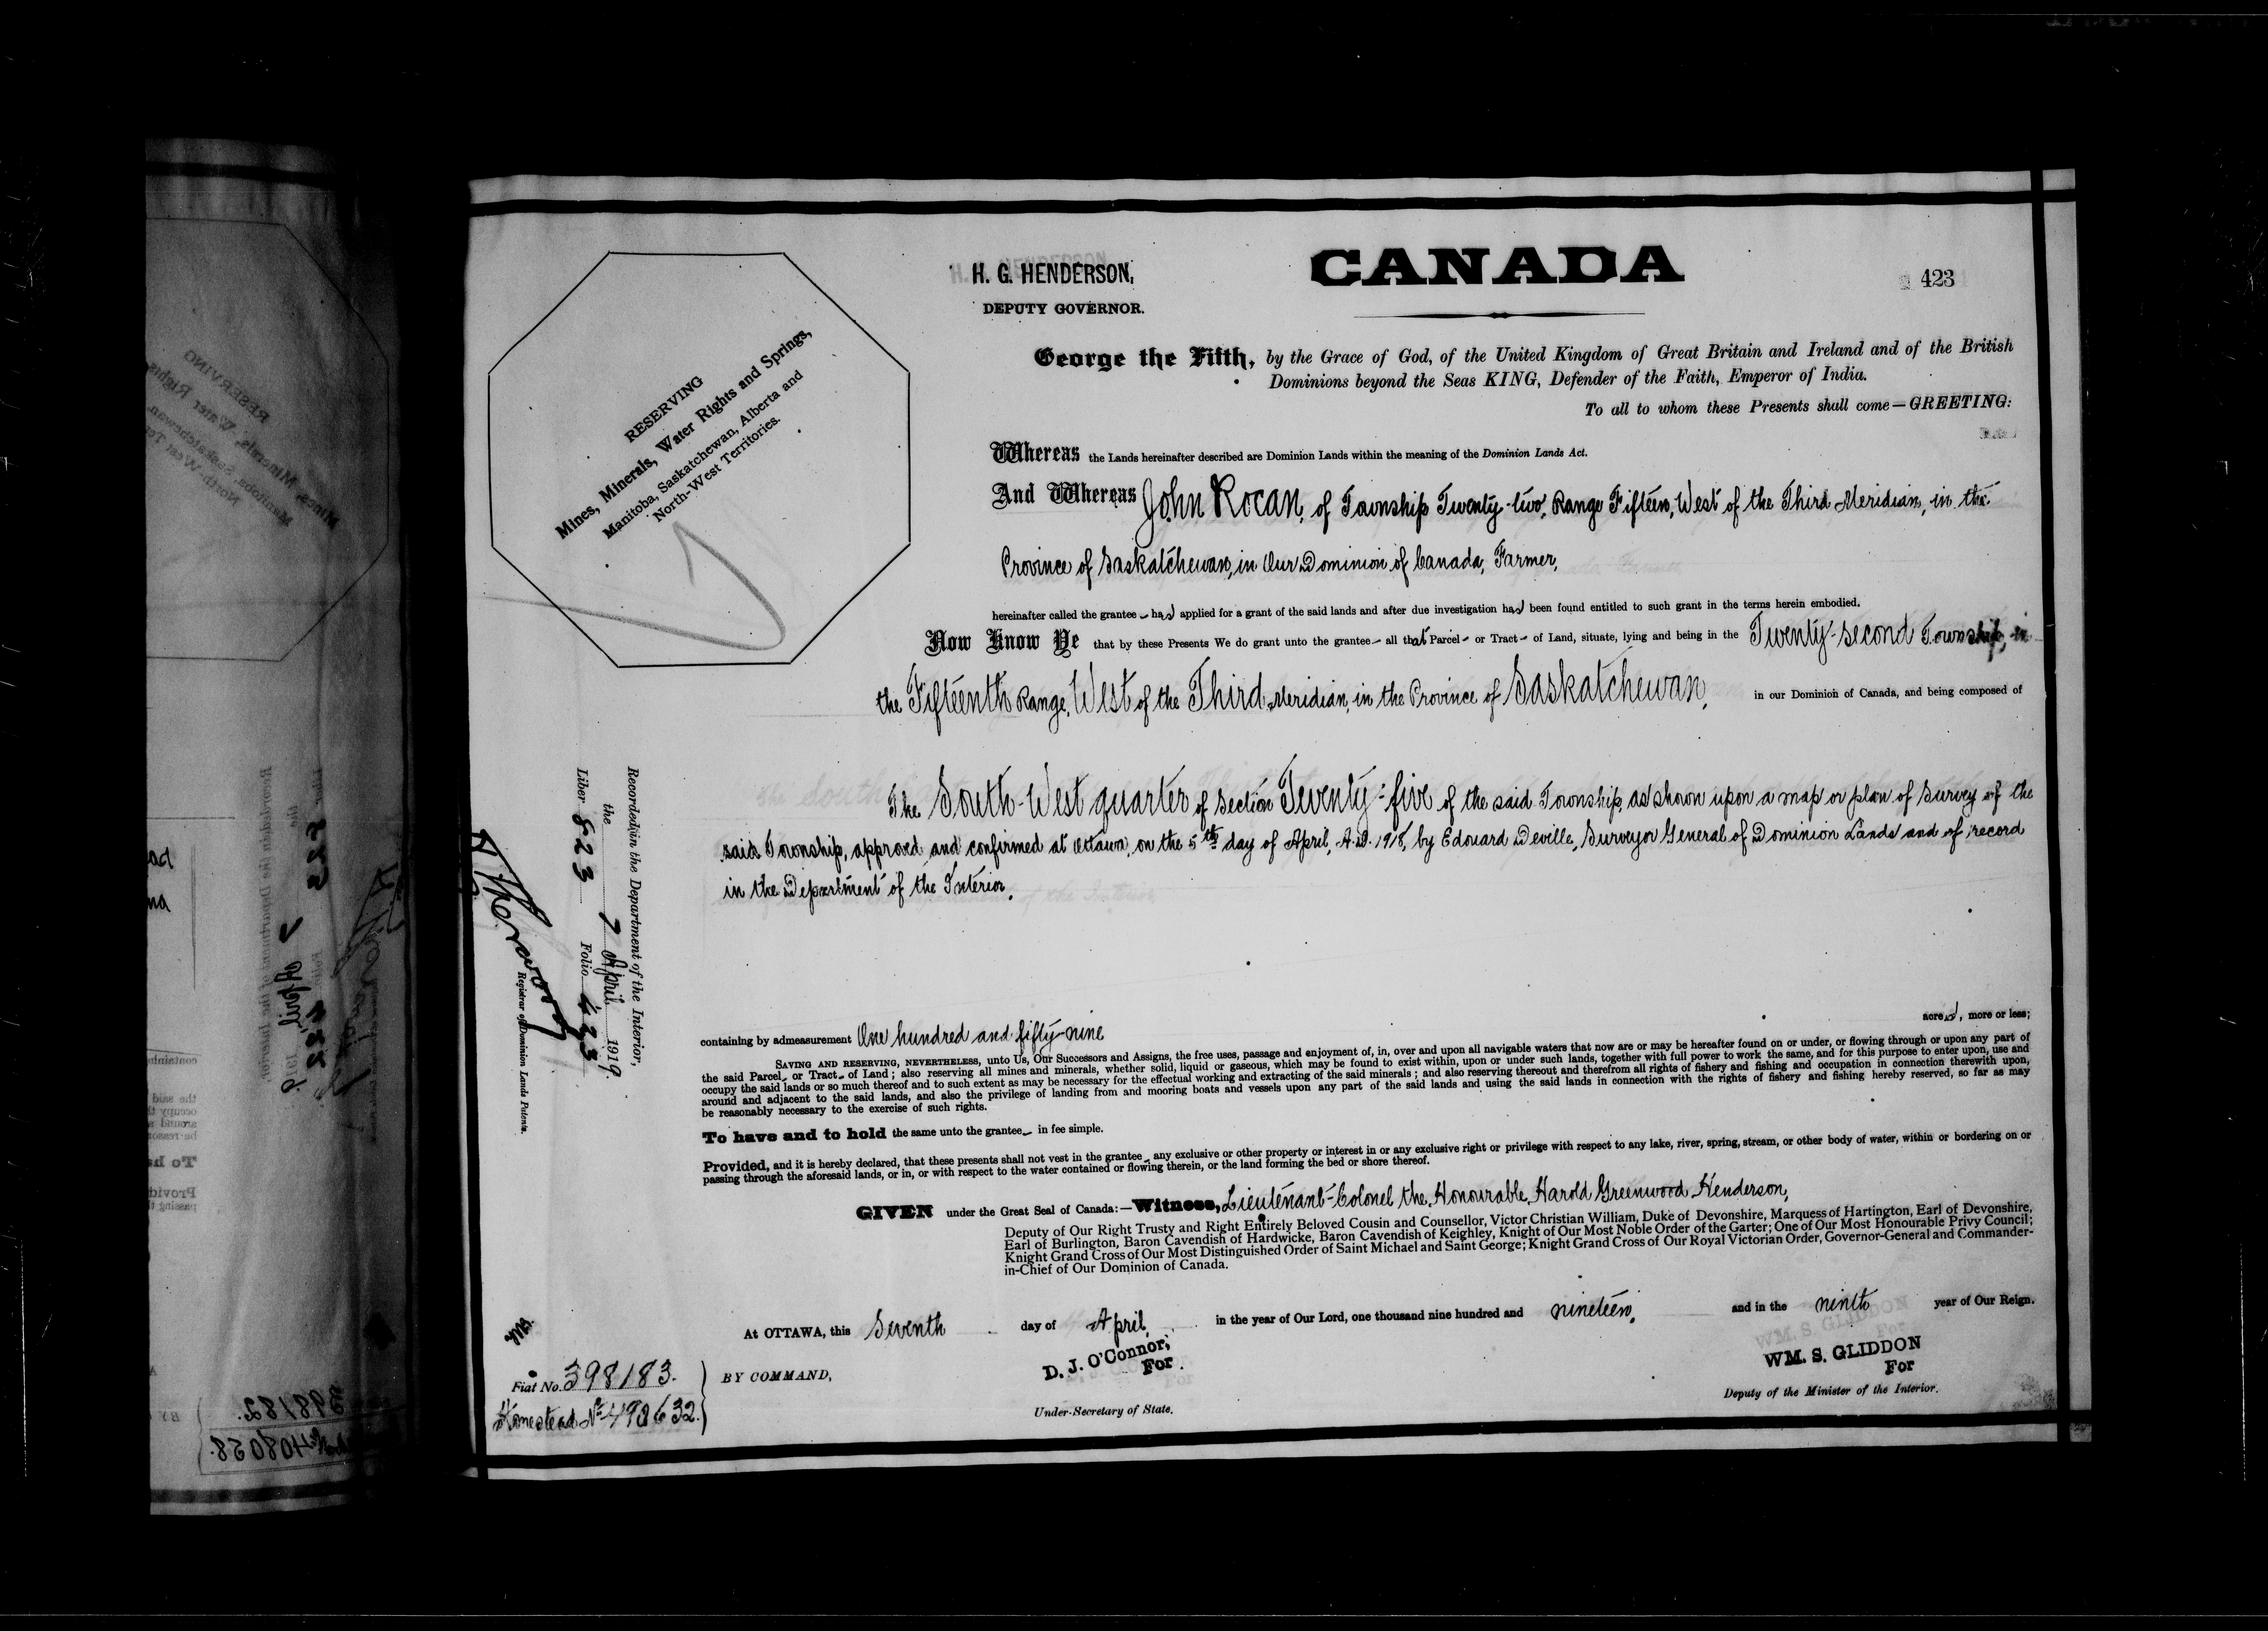 H. G. HENDERSON,
DEPUTY GOVERNOR.
CANADA
423
RESERVING
Mines, Minerals, Water Rights and Springs,
Manitoba, Saskatchewan, Alberta and
North-West Territories.
George the Fifth, by the Grace of God, of the United Kingdom of Great Britain and Ireland and of the British
Dominions beyond the Seas KING, Defender of the Faith, Emperor of India.
To all to whom these Presents shall come—GREETING:
Whereas the Lands hereinafter described are Dominion Lands within the meaning of the Dominion Lands Act.
And Whereas John Rocan, of Township Twenty-two, Range Fifteen, West of the Third Meridian, in the
Province of Saskatchewan, in Our Dominion of Canada, Farmer,
hereinafter called the grantee – has applied for a grant of the said lands and after due investigation has been found entitled to such grant in the terms herein embodied.
Now Know Ye that by these Presents We do grant unto the grantee – all that Parcel – or Tract – of Land, situate, lying and being in the Twenty-second Township, in
the Fifteenth Range, West of the Third Meridian, in the Province of Saskatchewan, in our Dominion of Canada, and being composed of
The South-West quarter of Section Twenty-five of the said Township, as shown upon a map or plan of Survey of the
said Township, approved and confirmed at Ottawa, on the 5th day of April, A.D. 1918, by Edouard Deville, Surveyor General of Dominion Lands and of record
in the Department of the Interior.
Recorded in the Department of the Interior,
the 7 April 1919.
Liber 823 Folio 423
Registrar of Dominion Lands Patents.
containing by admeasurement One hundred and fifty-nine acres, more or less;
SAVING AND RESERVING, NEVERTHELESS, unto Us, Our Successors and Assigns, the free uses, passage and enjoyment of, in, over and upon all navigable waters that now are or may be hereafter found on or under, or flowing through or upon any part of
the said Parcel – or Tract – of Land; also reserving all mines and minerals, whether solid, liquid or gaseous, which may be found to exist within, upon or under such lands, together with full power to work the same, and for this purpose to enter upon, use and
occupy the said lands or so much thereof and to such extent as may be necessary for the effectual working and extracting of the said minerals; and also reserving thereout and therefrom all rights of fishery and fishing and occupation in connection therewith upon,
around and adjacent to the said lands, and also the privilege of landing from and mooring boats and vessels upon any part of the said lands and using the said lands in connection with the rights of fishery and fishing hereby reserved, so far as may
be reasonably necessary to the exercise of such rights.
To have and to hold the same unto the grantee – in fee simple.
Provided, and it is hereby declared, that these presents shall not vest in the grantee – any exclusive or other property or interest in or any exclusive right or privilege with respect to any lake, river, spring, stream, or other body of water, within or bordering on or
passing through the aforesaid lands, or in, or with respect to the water contained or flowing therein, or the land forming the bed or shore thereof.
GIVEN under the Great Seal of Canada:—Witness, Lieutenant-Colonel the Honourable Harold Greenwood Henderson,
Deputy of Our Right Trusty and Right Entirely Beloved Cousin and Counsellor, Victor Christian William, Duke of Devonshire, Marquess of Hartington, Earl of Devonshire,
Earl of Burlington, Baron Cavendish of Hardwicke, Baron Cavendish of Keighley, Knight of Our Most Noble Order of the Garter; One of Our Most Honourable Privy Council;
Knight Grand Cross of Our Most Distinguished Order of Saint Michael and Saint George; Knight Grand Cross of Our Royal Victorian Order, Governor-General and Commander-
in-Chief of Our Dominion of Canada.
At OTTAWA, this Seventh day of April, in the year of Our Lord, one thousand nine hundred and nineteen, and in the ninth year of Our Reign.
BY COMMAND,
D. J. O'Connor,
For
Under-Secretary of State.
WM. S. GLIDDON
For
Deputy of the Minister of the Interior.
Fiat No. 398183.
Homestead No 498632.